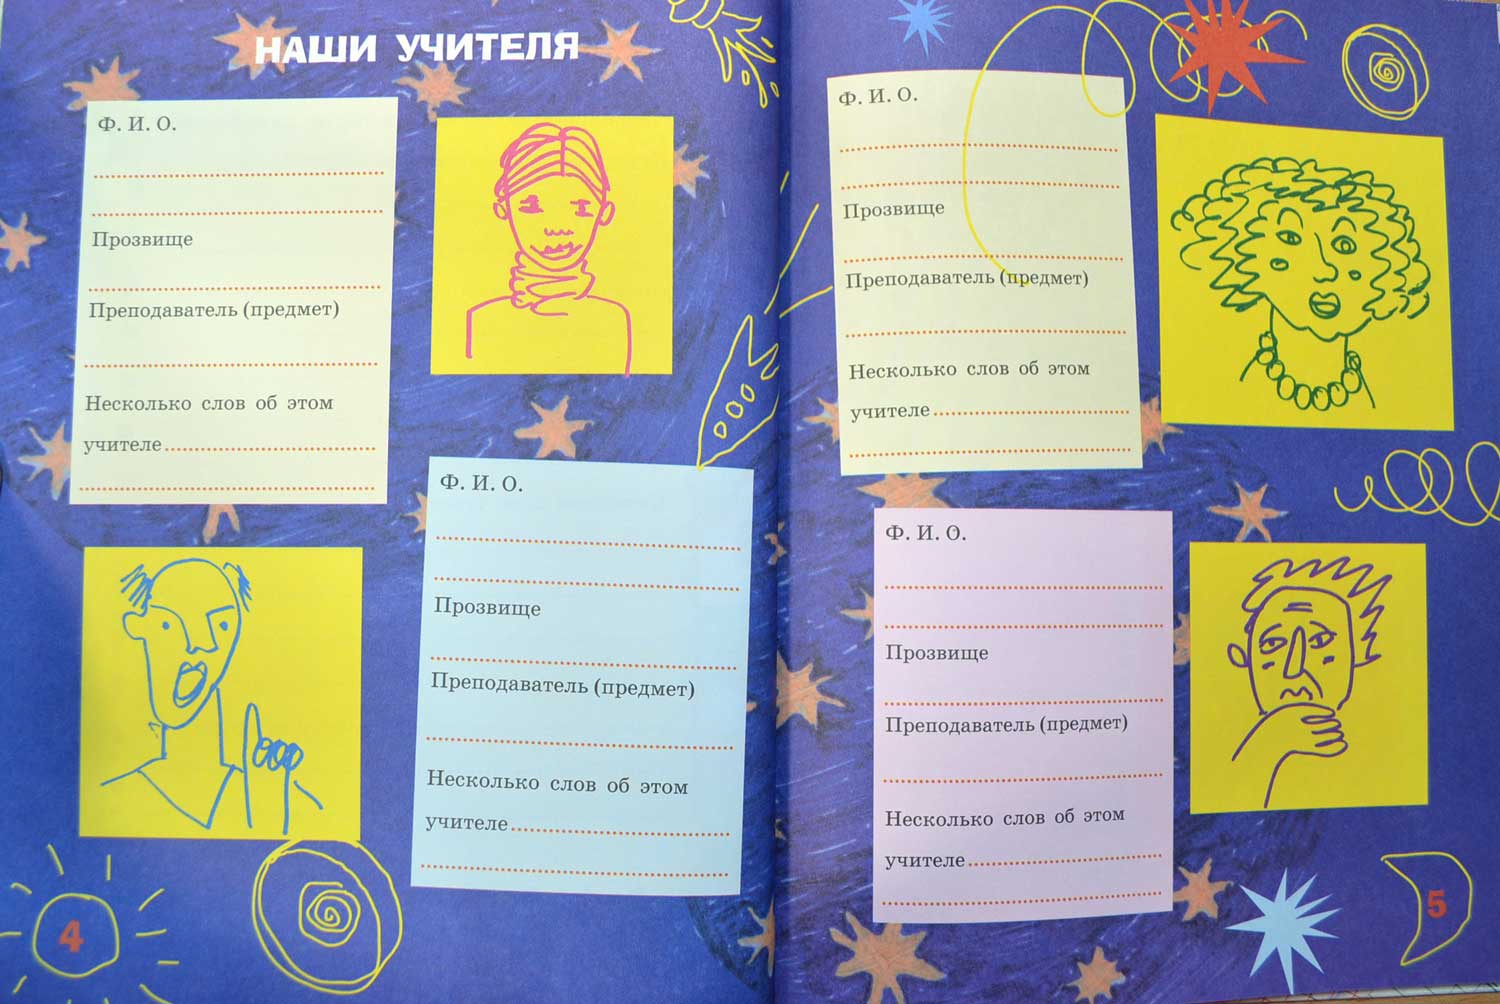 НАШИ УЧИТЕЛЯ
Ф. И. О.
Прозвище
Преподаватель (предмет)
Несколько слов об этом
учителе
Ф. И. О.
Прозвище
Преподаватель (предмет)
Несколько слов об этом
учителе
4
Ф. И. О.
Прозвище
Преподаватель (предмет)
Несколько слов об этом
учителе
Ф. И. О.
Прозвище
Преподаватель (предмет)
Несколько слов об этом
учителе
5